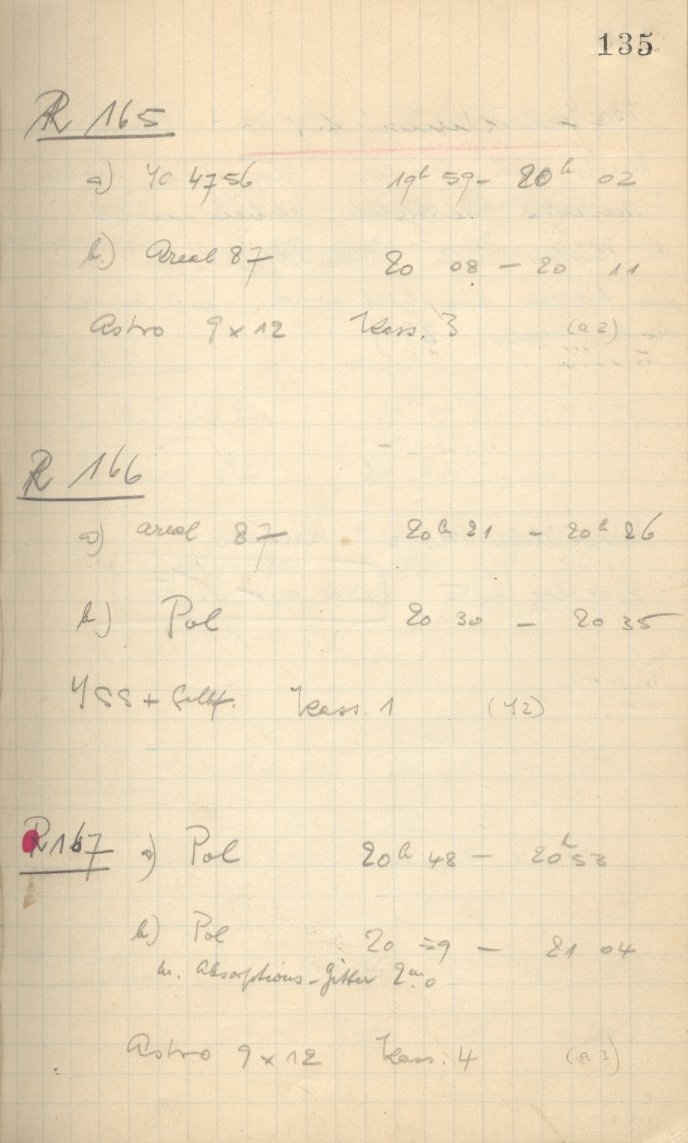 135
R 165
a) IC 4756 19h 59 - 20h 02
b.) Areal 87 20 08 - 20 11
Astro 9 x 12 Kass. 3 (a 2)
R 166
a) Areal 87 20h 21 - 20h 26
b) Pol 20 30 - 20 35
ISS + Gelbf. Kass. 1 (I2)
R 167 a) Pol 20h 48 - 20h 53
b) Pol 20 59 - 21 04
m. Absorptions-Gitter 2m.0
Astro 9 x 12 Kass. 4 (a 3)